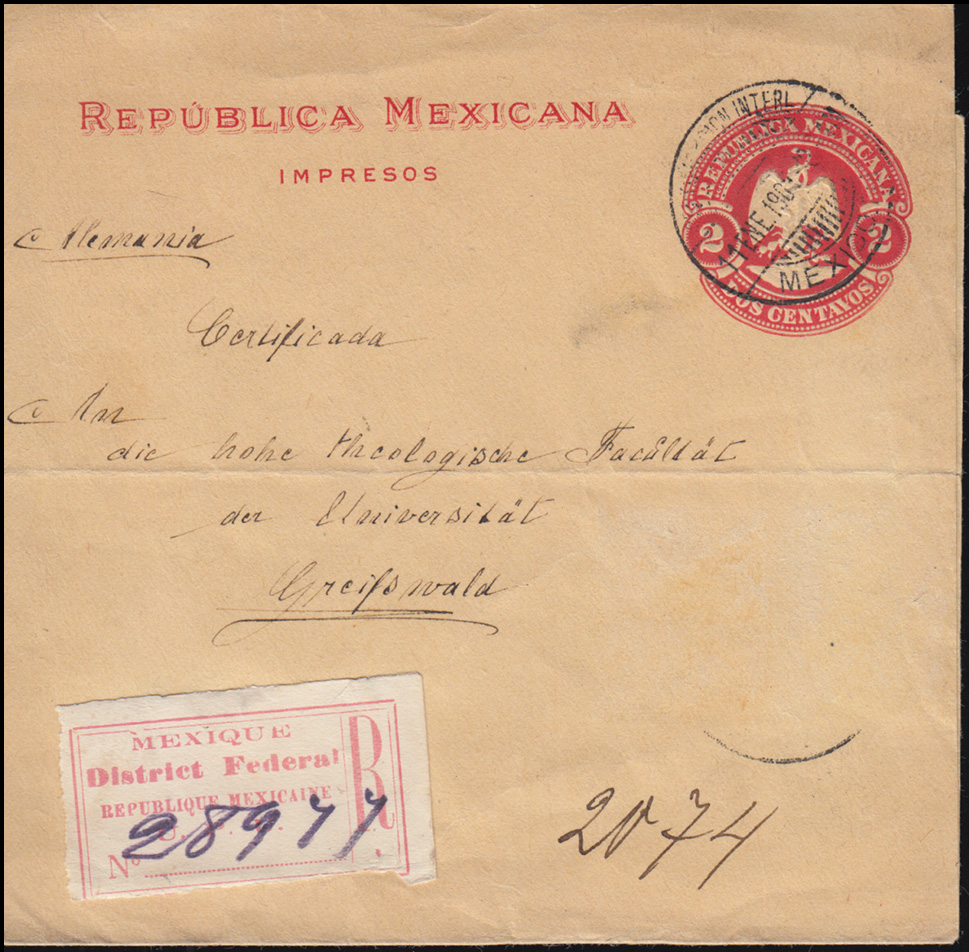 REPÚBLICA MEXICANA
IMPRESOS
REPUBLICA MEXICANA
2 2
DOS CENTAVOS
INTERL
11 ENE 190
MEXICO
Alemania
Certificada
An
die hohe theologische Facültät
der Universität
Greifswald
MEXIQUE
District Federal
REPUBLIQUE MEXICAINE
R
No 28977
2074